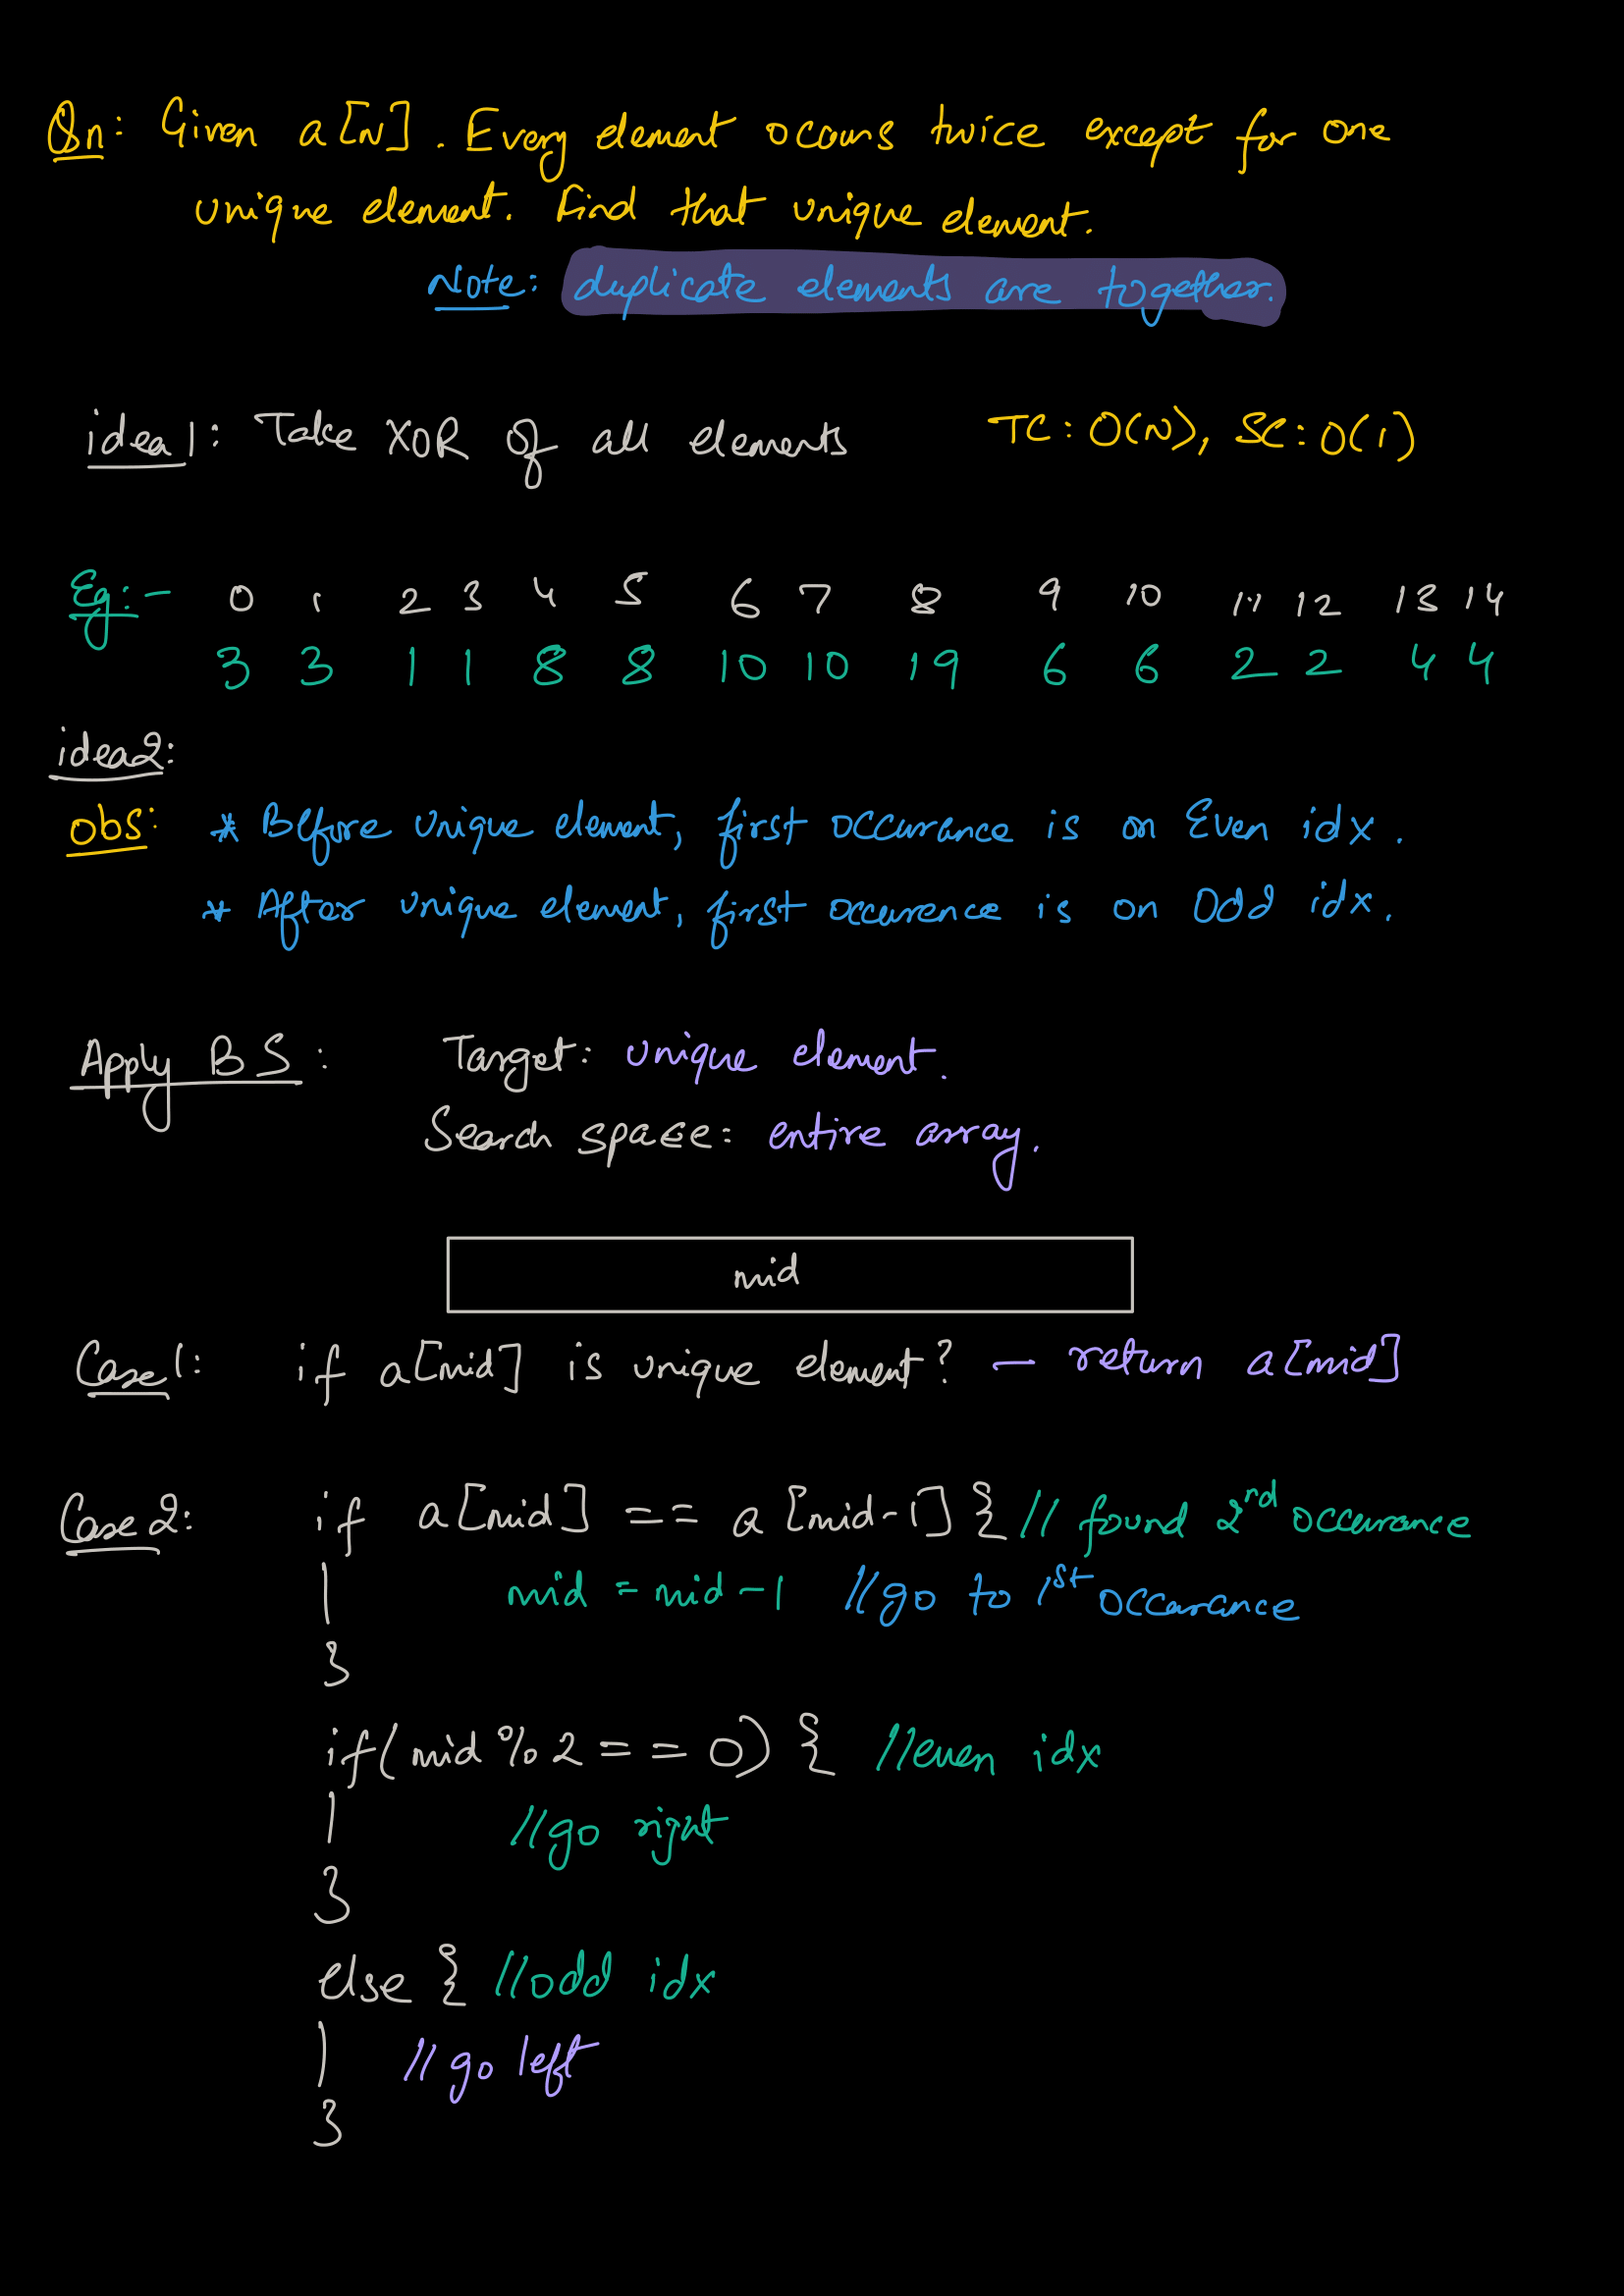 Qn: Given a[N]. Every element occurs twice except for one
unique element. Find that unique element.
Note: duplicate elements are together.
idea1: Take XOR of all elements TC: O(N), SC: O(1)
Eg:- 0 1 2 3 4 5 6 7 8 9 10 11 12 13 14
3 3 1 1 8 8 10 10 19 6 6 2 2 4 4
idea2:
obs: * Before unique element, first occurance is on Even idx.
* After unique element, first occurence is on Odd idx.
Apply BS: Target: unique element.
Search space: entire array.
mid
Case1: if a[mid] is unique element? — return a[mid]
Case2: if a[mid] == a[mid-1] { // found 2nd occurance
mid = mid-1 //go to 1st occurance
}
if(mid%2==0) { //even idx
//go right
}
else { //odd idx
//go left
}